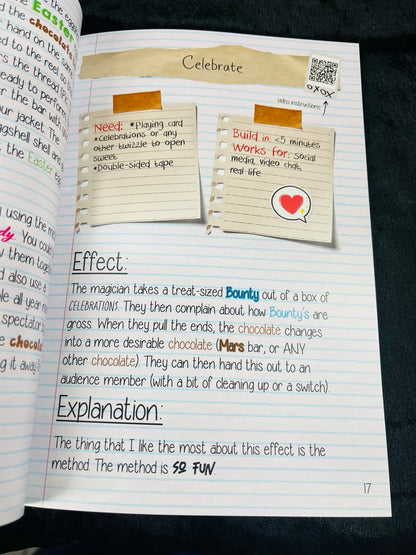 the eggshell
the Easter
d the chocolate
hand on the same
ed to the reel so
rs the thread (b
ready to perform
r the bar with
our jacket. The
ggshell shell and
, the Easter egg
using the me
dy. You could
w them togeth
d also use a
le all year
spectator
e chocol
g it away
Celebrate
OXOX
video instructions
Need: *Playing card
*Celebrations or any
other twizzle to open
sweet
*Double-sided tape
Build in: <5 minutes
Works for: Social
media, video chats,
real-life
Effect:
The magician takes a treat-sized Bounty out of a box of
CELEBRATIONS. They then complain about how Bounty's are
gross. When they pull the ends, the chocolate changes
into a more desirable chocolate (Mars bar, or ANY
other chocolate). They can then hand this out to an
audience member (with a bit of cleaning up or a switch).
Explanation:
The thing that I like the most about this effect is the
method. The method is SO FUN.
17